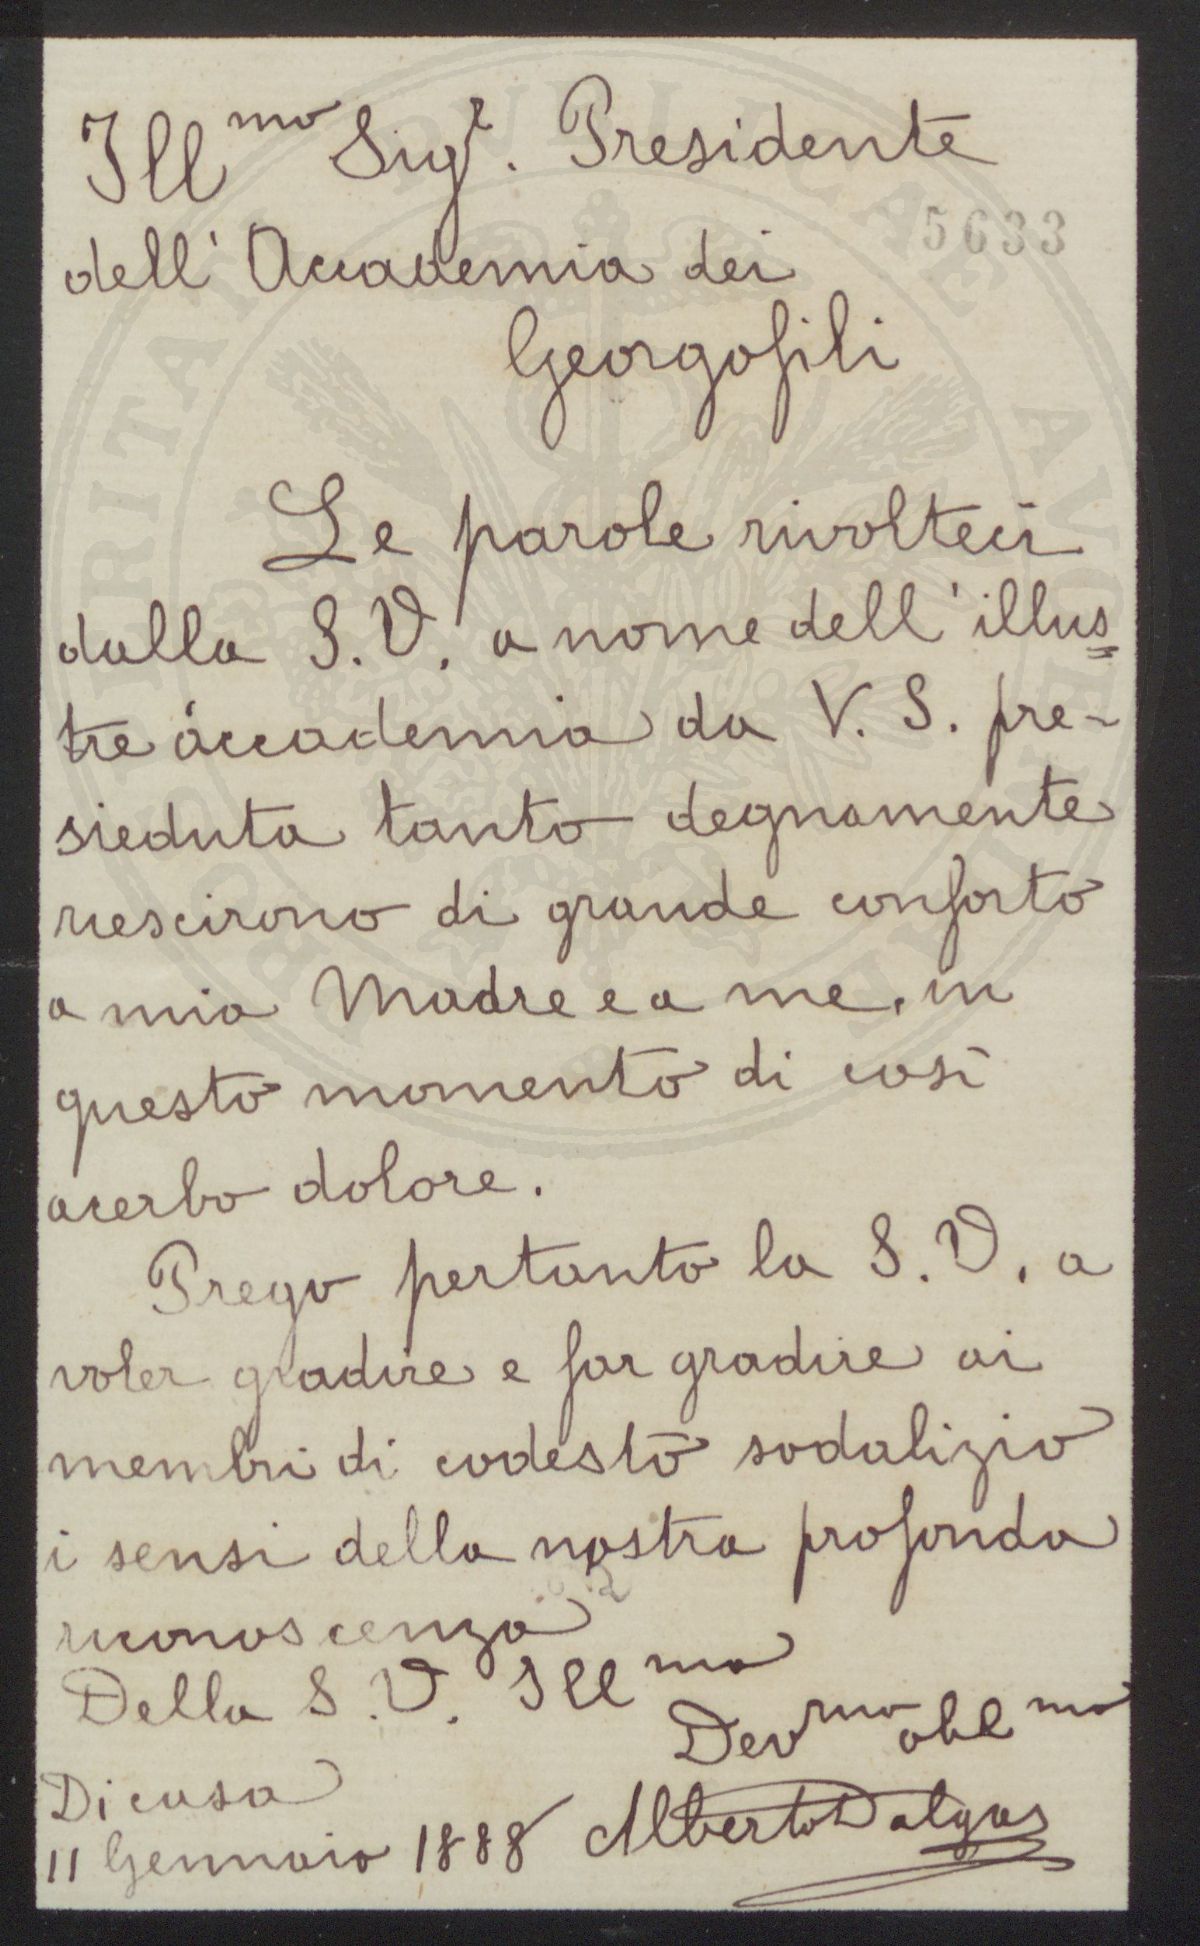 Ill^mo Sig^r. Presidente
5633
dell' Accademia dei
Georgofili
Le parole rivolteci
dalla S. V. a nome dell' illus=
tre accademia da V. S. pre-
sieduta tanto degnamente
riescirono di grande conforto
a mia Madre e a me, in
questo momento di così
acerbo dolore.
Prego pertanto la S. V. a
voler gradire e far gradire ai
membri di codesto sodalizio
i sensi della nostra profonda
riconoscenza
Della S. V. Ill^ma
Dev^mo obbl^mo
Di casa
11 Gennaio 1888 Alberto Dalgas